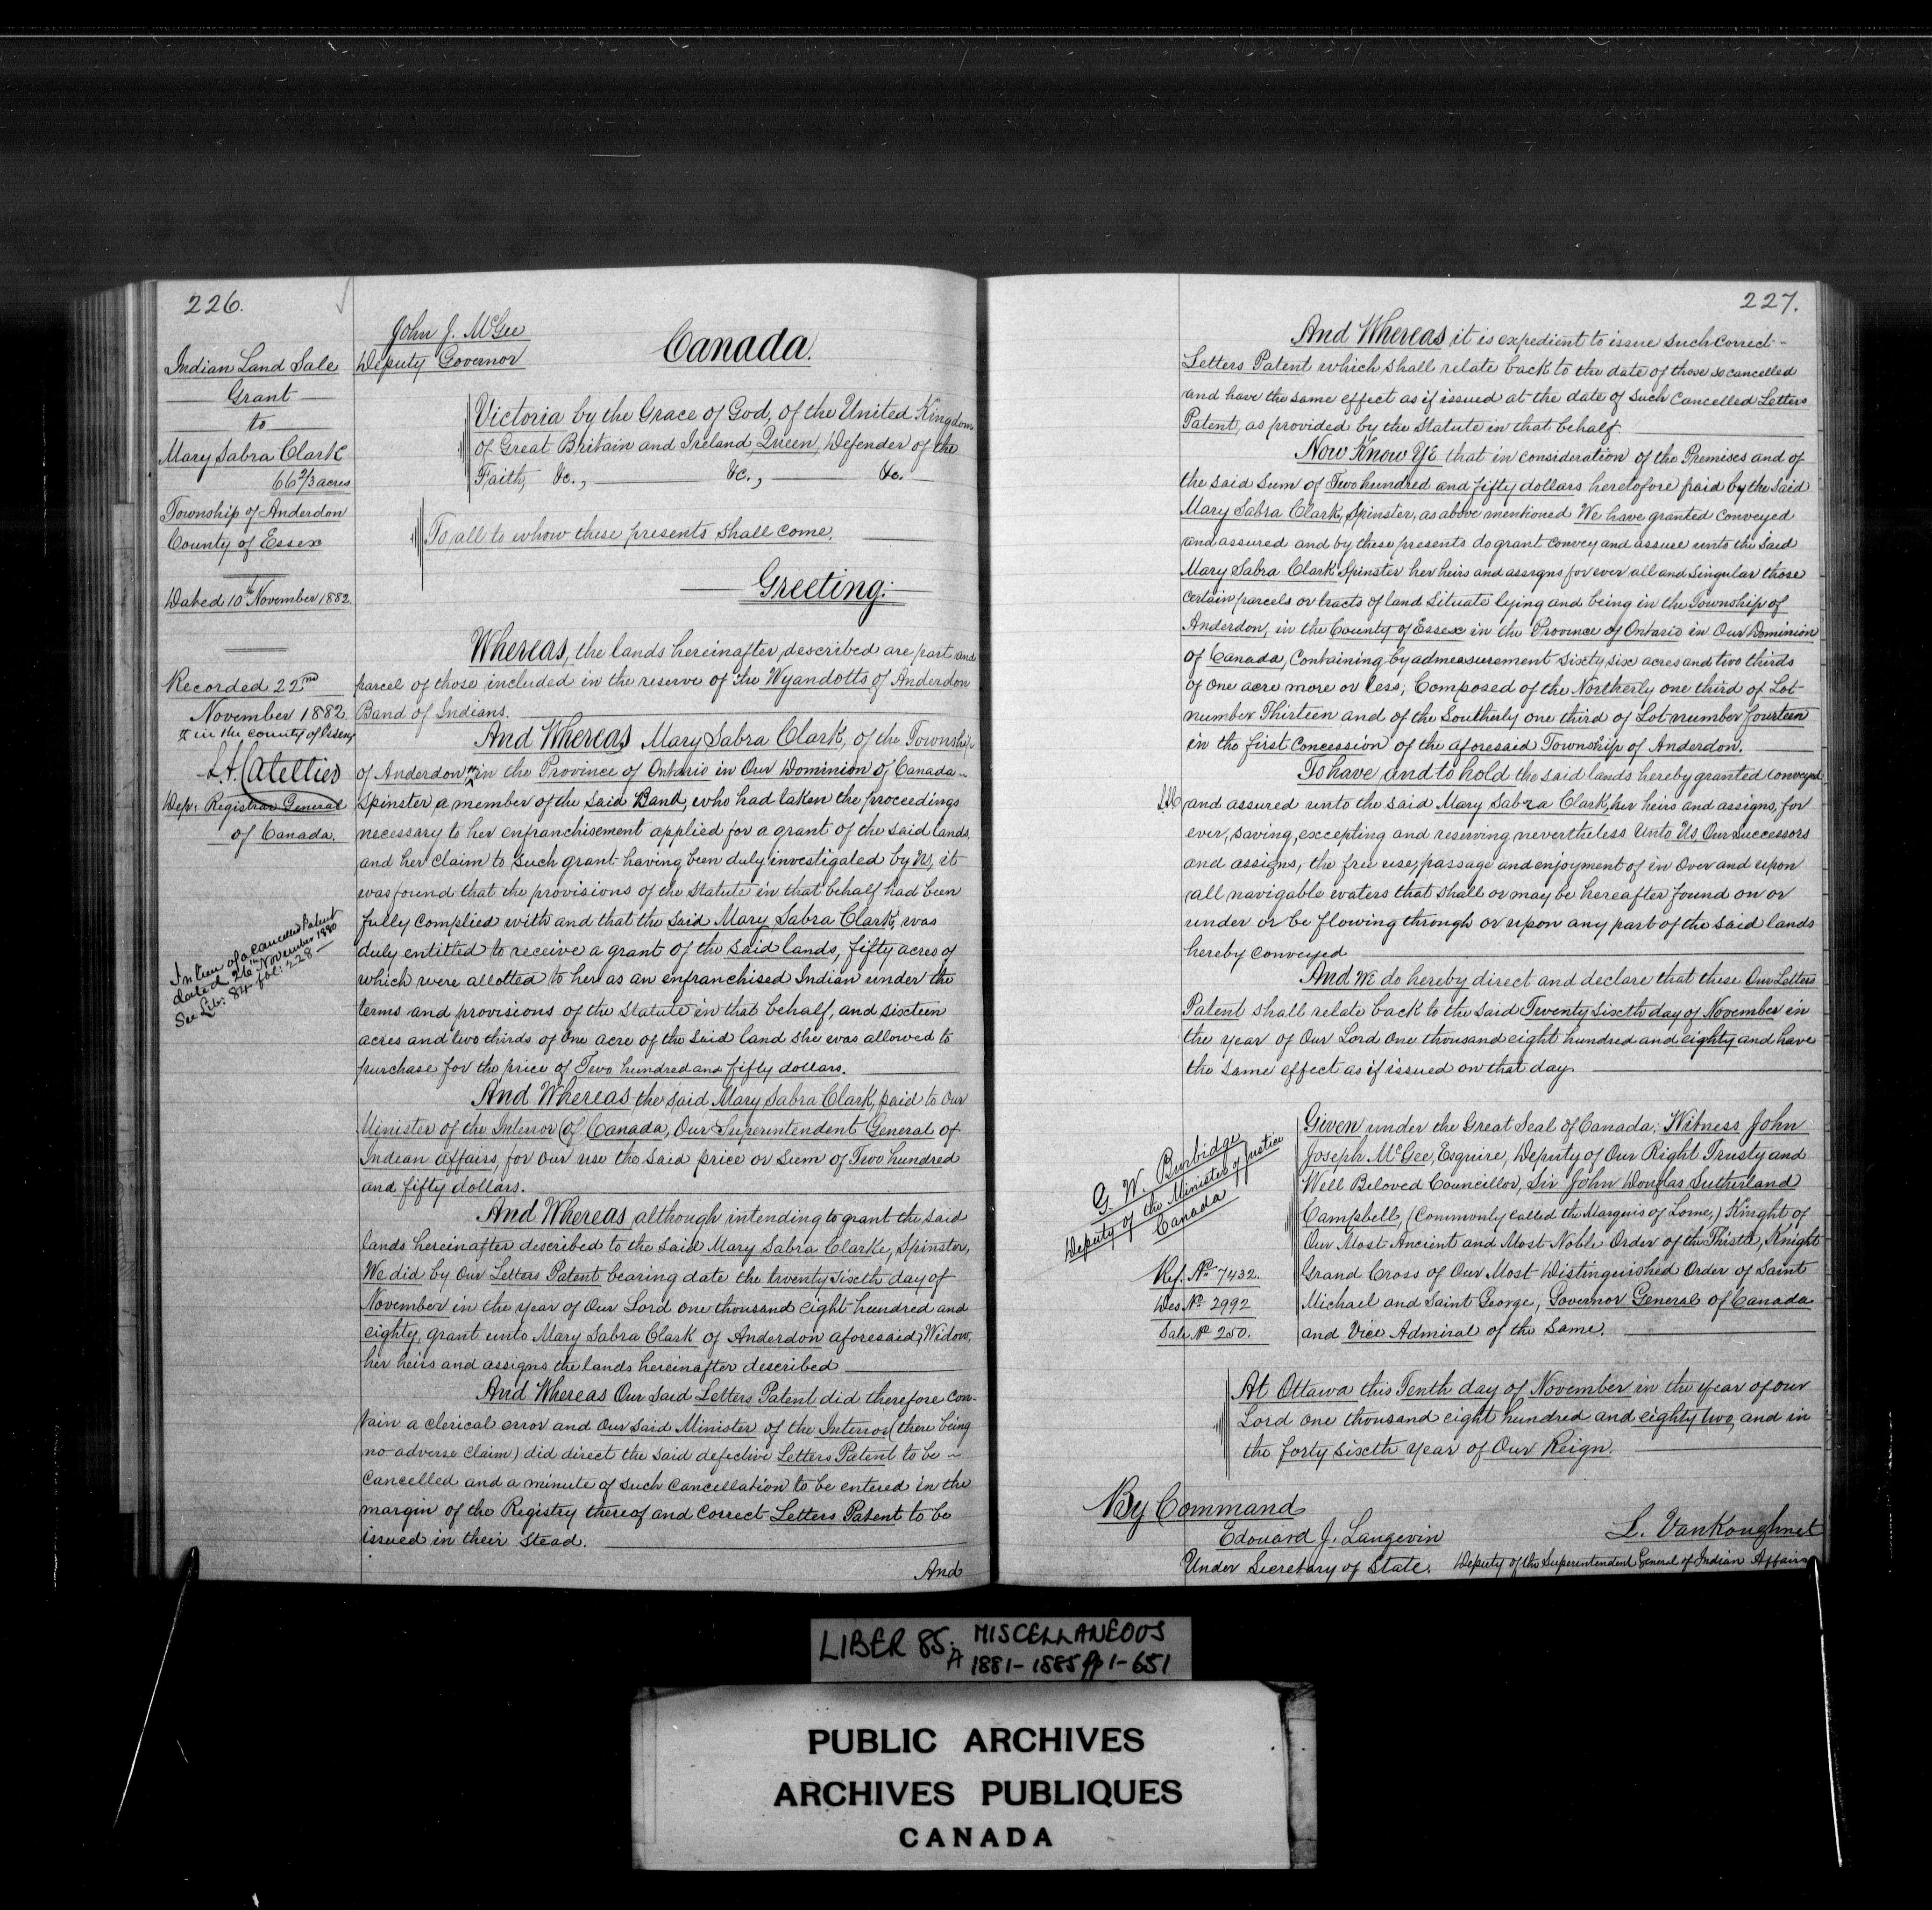 226.
Indian Land Sale
Grant
to
Mary Sabra Clark
66 2/3 acres
Township of Anderdon
County of Essex
Dated 10th November 1882.
Recorded 22nd
November 1882.
# in the county of Essex
L.A. Catellier
Dep: Registrar General
of Canada.
In lieu of a cancelled Patent
dated 26th November 1880
See Lib: 84 fol: 228
John J. McGee
Deputy Governor
Canada.
Victoria by the Grace of God, of the United Kingdom
of Great Britain and Ireland, Queen, Defender of the
Faith, &c., &c., &c.
To all to whow these presents shall come.
Greeting:
Whereas, the lands hereinafter described are part and
parcel of those included in the reserve of the Wyandotts of Anderdon
Band of Indians.
And Whereas Mary Sabra Clark, of the Township
of Anderdon # in the Province of Ontario in Our Dominion of Canada
Spinster a member of the said Band, who had taken the proceedings
necessary to her enfranchisement applied for a grant of the said lands,
and her claim to such grant having been duly investigated by Us, it
was found that the provisions of the Statute in that behalf had been
fully complied with and that the said Mary Sabra Clark, was
duly entitled to receive a grant of the said lands, fifty acres of
which were allotted to her as an enfranchised Indian under the
terms and provisions of the Statute in that behalf, and sixteen
acres and two thirds of one acre of the said land she was allowed to
purchase for the price of Two hundred and fifty dollars.
And Whereas the said Mary Sabra Clark, paid to Our
Minister of the Interior (of Canada, Our Superintendent General of
Indian affairs, for our use the said price or sum of Two hundred
and fifty dollars.
And Whereas although intending to grant the said
lands hereinafter described to the said Mary Sabra Clarke, Spinster,
We did by Our Letters Patent bearing date the twenty sixth day of
November in the year of Our Lord one thousand eight hundred and
eighty, grant unto Mary Sabra Clark of Anderdon aforesaid, Widow,
her heirs and assigns the lands hereinafter described
And Whereas Our said Letters Patent did therefore con-
tain a clerical error and Our said Minister of the Interior (there being
no adverse claim) did direct the said defective Letters Patent to be
cancelled and a minute of such cancellation to be entered in the
margin of the Registry thereof and correct Letters Patent to be
issued in their stead.
And
227.
And Whereas it is expedient to issue such correct
Letters Patent which shall relate back to the date of those so cancelled
and have the same effect as if issued at the date of such cancelled Letters
Patent, as provided by the Statute in that behalf.
Now Know Ye that in consideration of the Premises and of
the said sum of Two hundred and fifty dollars heretofore paid by the said
Mary Sabra Clark, Spinster, as above mentioned We have granted conveyed
and assured and by these presents do grant convey and assure unto the said
Mary Sabra Clark Spinster her heirs and assigns for ever all and singular those
certain parcels or tracts of land situate lying and being in the Township of
Anderdon, in the County of Essex in the Province of Ontario in Our Dominion
of Canada, Containing by admeasurement sixty six acres and two thirds
of one acre more or less, Composed of the Northerly one third of Lot
number Thirteen and of the Southerly one third of Lot number fourteen
in the first Concession of the aforesaid Township of Anderdon.
To have and to hold the said lands hereby granted conveyed
and assured unto the said Mary Sabra Clark, her heirs and assigns, for
ever, saving, excepting and reserving, nevertheless Unto Us, Our Successors
and assigns, the free use, passage and enjoyment of in over and upon
all navigable waters that shall or may be hereafter found on or
under or be flowing through or upon any part of the said lands
hereby conveyed
And We do hereby direct and declare that these Our Letters
Patent shall relate back to the said Twenty sixth day of November in
the year of Our Lord one thousand eight hundred and eighty and have
the same effect as if issued on that day.
G. W. Burbidge
Deputy of the Minister of Justice
Canada
Ref. No. 7432.
Des No. 2992
Sale No. 250.
Given under the Great Seal of Canada; Witness John
Joseph McGee, Esquire, Deputy of Our Right Trusty and
Well Beloved Councillor, Sir John Douglas Sutherland
Campbell, (Commonly called the Marquis of Lorne,) Knight of
Our Most Ancient and Most Noble Order of the Thistle, Knight
Grand Cross of Our Most Distinguished Order of Saint
Michael and Saint George, Governor General of Canada
and Vice Admiral of the same.
At Ottawa this Tenth day of November in the year of our
Lord one thousand eight hundred and eighty two, and in
the forty sixth year of Our Reign.
By Command
Edouard J. Langevin
Under Secretary of State.
L. VanKoughnet
Deputy of the Superintendent General of Indian Affairs
LIBER 85. MISCELLANEOUS
A 1881-1885 pp 1-651
PUBLIC ARCHIVES
ARCHIVES PUBLIQUES
CANADA